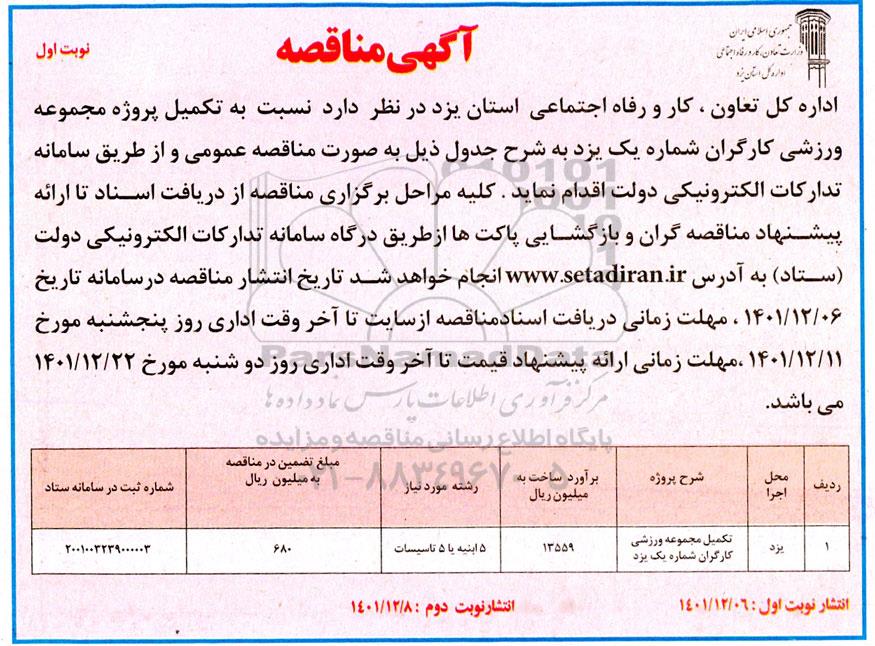 جمهوری اسلامی ایران
وزارت تعاون، کار و رفاه اجتماعی
اداره کل استان یزد
آگهی مناقصه
نوبت اول
اداره کل تعاون ، کار و رفاه اجتماعی استان یزد در نظر دارد نسبت به تکمیل پروژه مجموعه
ورزشی کارگران شماره یک یزد به شرح جدول ذیل به صورت مناقصه عمومی و از طریق سامانه
تدارکات الکترونیکی دولت اقدام نماید . کلیه مراحل برگزاری مناقصه از دریافت اسناد تا ارائه
پیشنهاد مناقصه گران و بازگشایی پاکت ها ازطریق درگاه سامانه تدارکات الکترونیکی دولت
(ستاد) به آدرس www.setadiran.ir انجام خواهد شد تاریخ انتشار مناقصه درسامانه تاریخ
۱۴۰۱/۱۲/۰۶ ، مهلت زمانی دریافت اسنادمناقصه ازسایت تا آخر وقت اداری روز پنجشنبه مورخ
۱۴۰۱/۱۲/۱۱ ،مهلت زمانی ارائه پیشنهاد قیمت تا آخر وقت اداری روز دو شنبه مورخ ۱۴۰۱/۱۲/۲۲
می باشد.
ParsNamadData
مرکز فرآوری اطلاعات پارس نماد داده ها
پایگاه اطلاع رسانی مناقصه و مزایده
۰۲۱-۸۸۳۴۹۶۷۰-۵
ردیف
محل اجرا
شرح پروژه
برآورد ساخت به میلیون ریال
رشته مورد نیاز
مبلغ تضمین در مناقصه به میلیون ریال
شماره ثبت در سامانه ستاد
۱
یزد
تکمیل مجموعه ورزشی
کارگران شماره یک یزد
۱۳۵۵۹
۵ ابنیه یا ۵ تاسیسات
۶۸۰
۲۰۰۱۰۰۳۲۳۹۰۰۰۰۰۳
انتشار نوبت اول : ۱۴۰۱/۱۲/۰۶
انتشارنوبت دوم : ۱۴۰۱/۱۲/۸